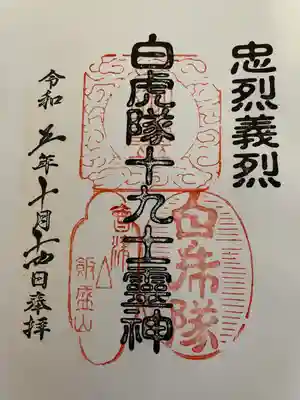 忠烈義烈
白虎隊十九士靈神
令和五年十月十四日奉拝
白虎隊
會津
飯盛山